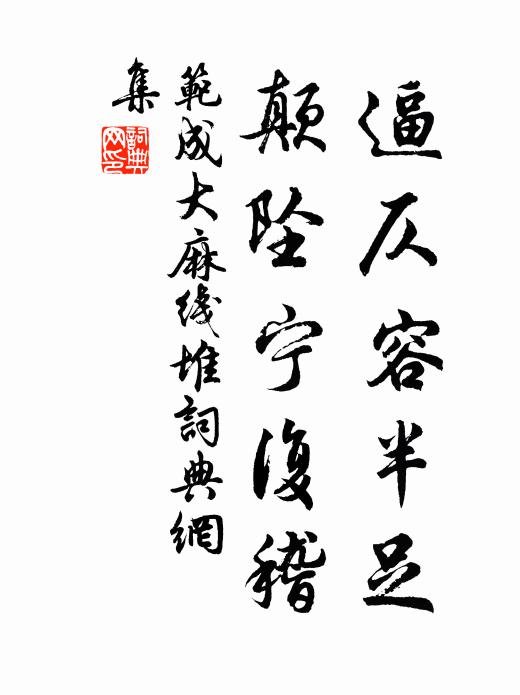 逼仄容半足
颠坠宁復稽
範成大麻线堆詞典網
集
詞典网印